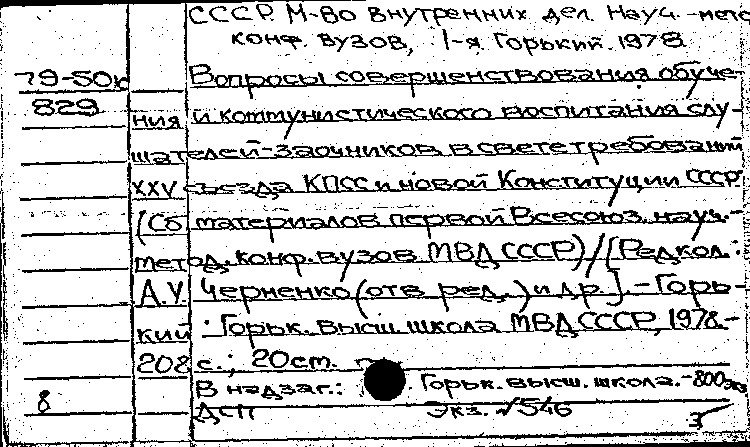 СССР. М-во внутренних дел. Науч.-мето
конф. вузов, 1-я. Горький. 1978
79-50к Вопросы совершенствования обуче-
829 ния и коммунистического воспитания слу-
шателей-заочников в свете требований
XXV съезда КПСС и новой Конституции СССР
(Сб материалов первой Всесоюз. науч.-
метод. конф. вузов МВД СССР) / [Редкол.:
А.У. Черненко (отв ред.) и др.]. - Горь-
кий : Горьк. высш. школа МВД СССР, 1978.-
208 с.; 20 см.
В надзаг.: Горьк. высш. школа. - 800 экз
8 ДСП Экз. №546